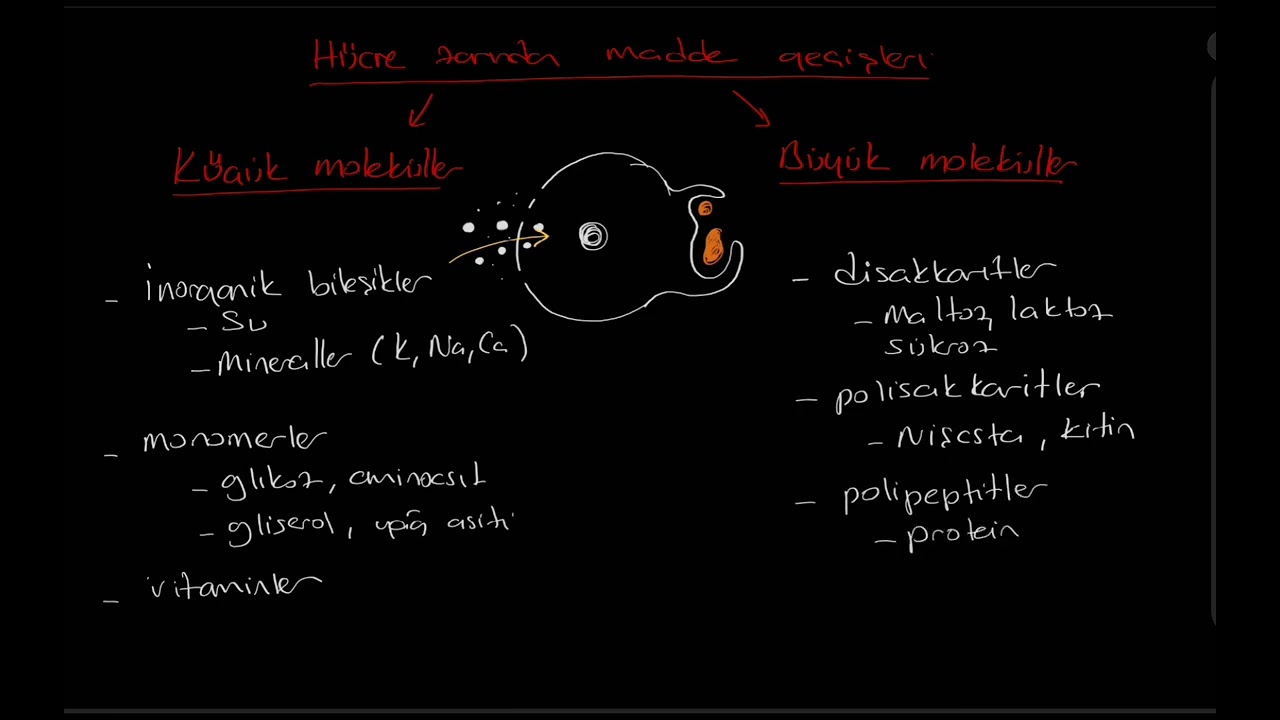 Hücre zarında madde geçişleri
Küçük moleküller
Büyük moleküller
- inorganik bileşikler
- Su
- Mineraller (K, Na, Ca)
- monomerler
- glikoz, aminoasit
- gliserol, yağ asiti
- vitaminler
- disakkaritler
- Maltoz, laktoz
sükroz
- polisakkaritler
- Nişasta, kitin
- polipeptitler
- protein